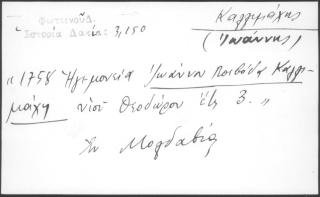 Φωτεινοῦ Δ.
Ἱστορία Δακία: 3,150
Καλλιμάχης
(Ἰωάννης)
" 1758 Ἡγεμονεία Ἰωάννου Βοεβόδα Καλλι-
μάχη υἱοῦ Θεοδώρου ἔτη 3. "
Ἐν Μολδαβίᾳ